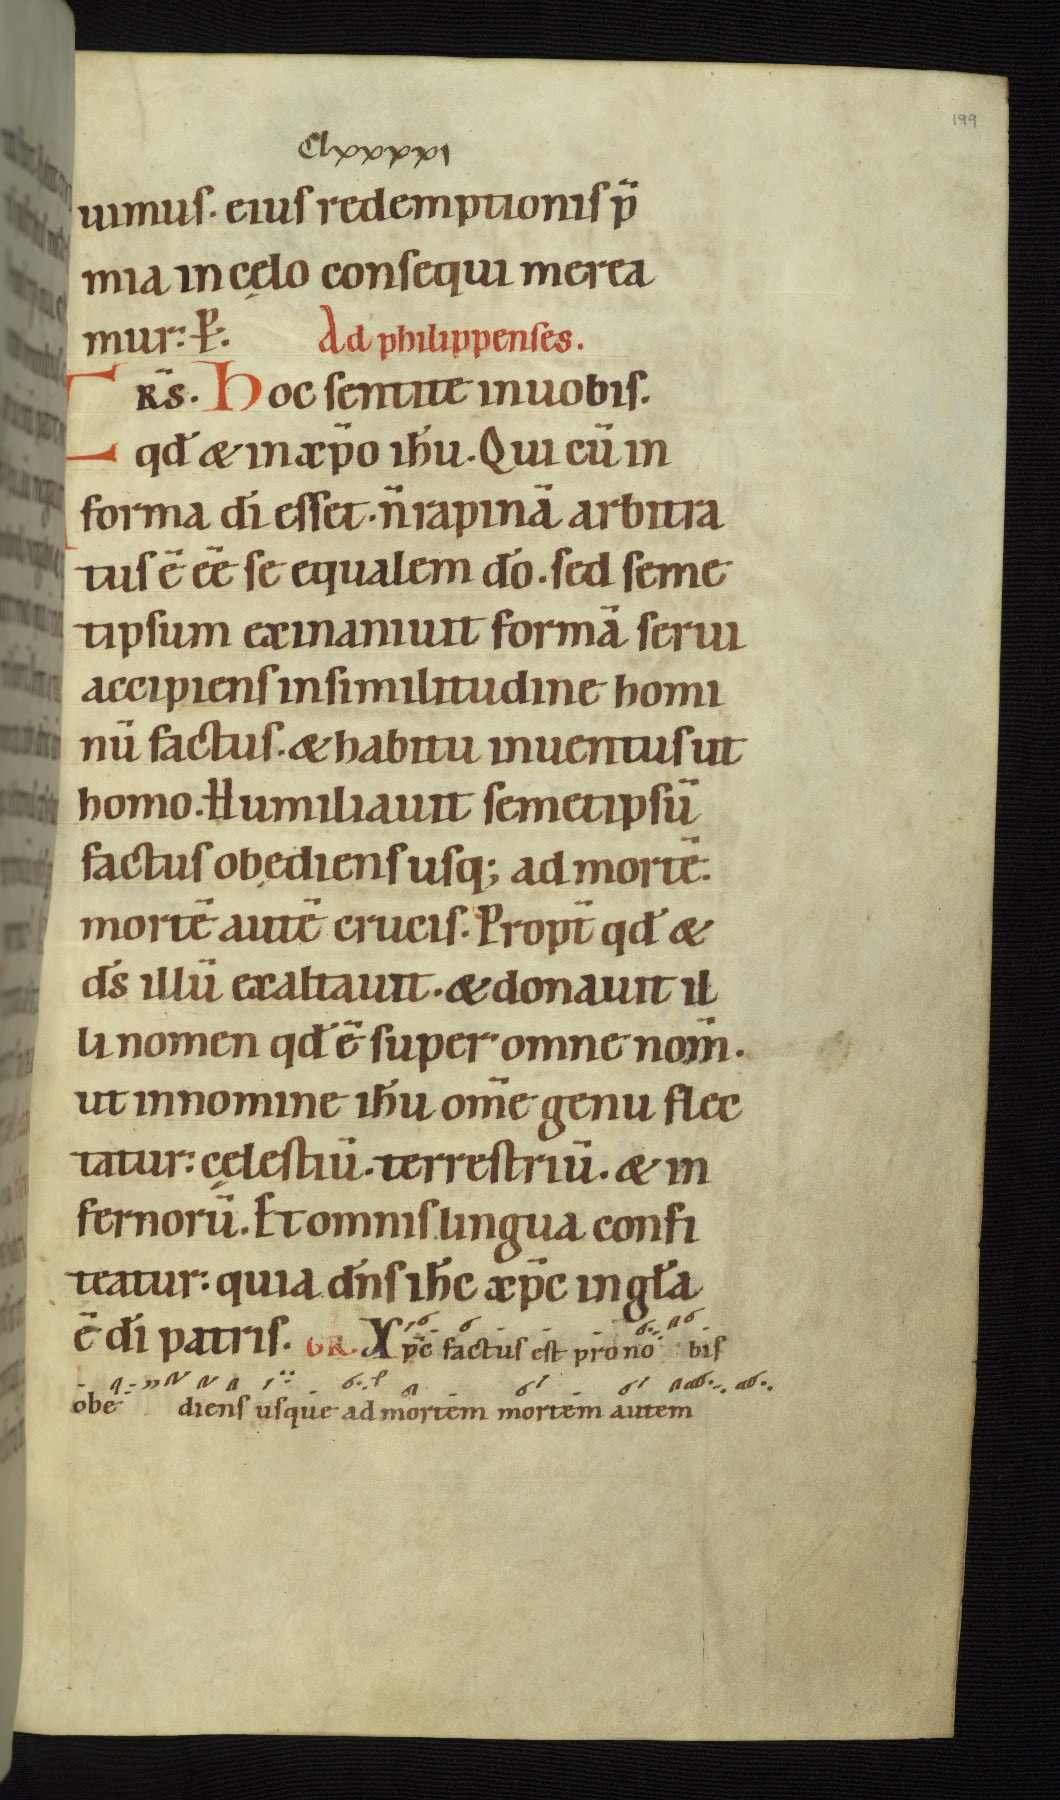 199
Clxxxxı
uimus. eius redemptionis p̄
mia in cęlo consequi merea
mur: P:
Ad philippenses.
FR̄S. Hoc sentite in uobis.
qđ & in xp̄o ihū. Qui cū in
forma dī esset. n̄ rapinā arbitra
tus ē ēē se equalem dō. sed seme
tipsum exinaniuit formā serui
accipiens in similitudine homi
nū factus. & habitu inuentus ut
homo. Humiliauit semetipsū
factus obędiens usq; ad mortē.
mortē autē crucis. Propt̄ qđ &
ds̄ illū exaltauit. & donauit il
li nomen qđ ē super omne nom̄.
ut in nomine ihū om̄e genu flec
tatur: cęlestiū. terrestriū. & in
fernorū. Et omnis lingua confi
teatur: quia dn̄s ihc̄ xp̄c in gla̅
ē dī patris. GR. Xp̄c factus est pro no bis
obe diens usque ad mortem mortem autem